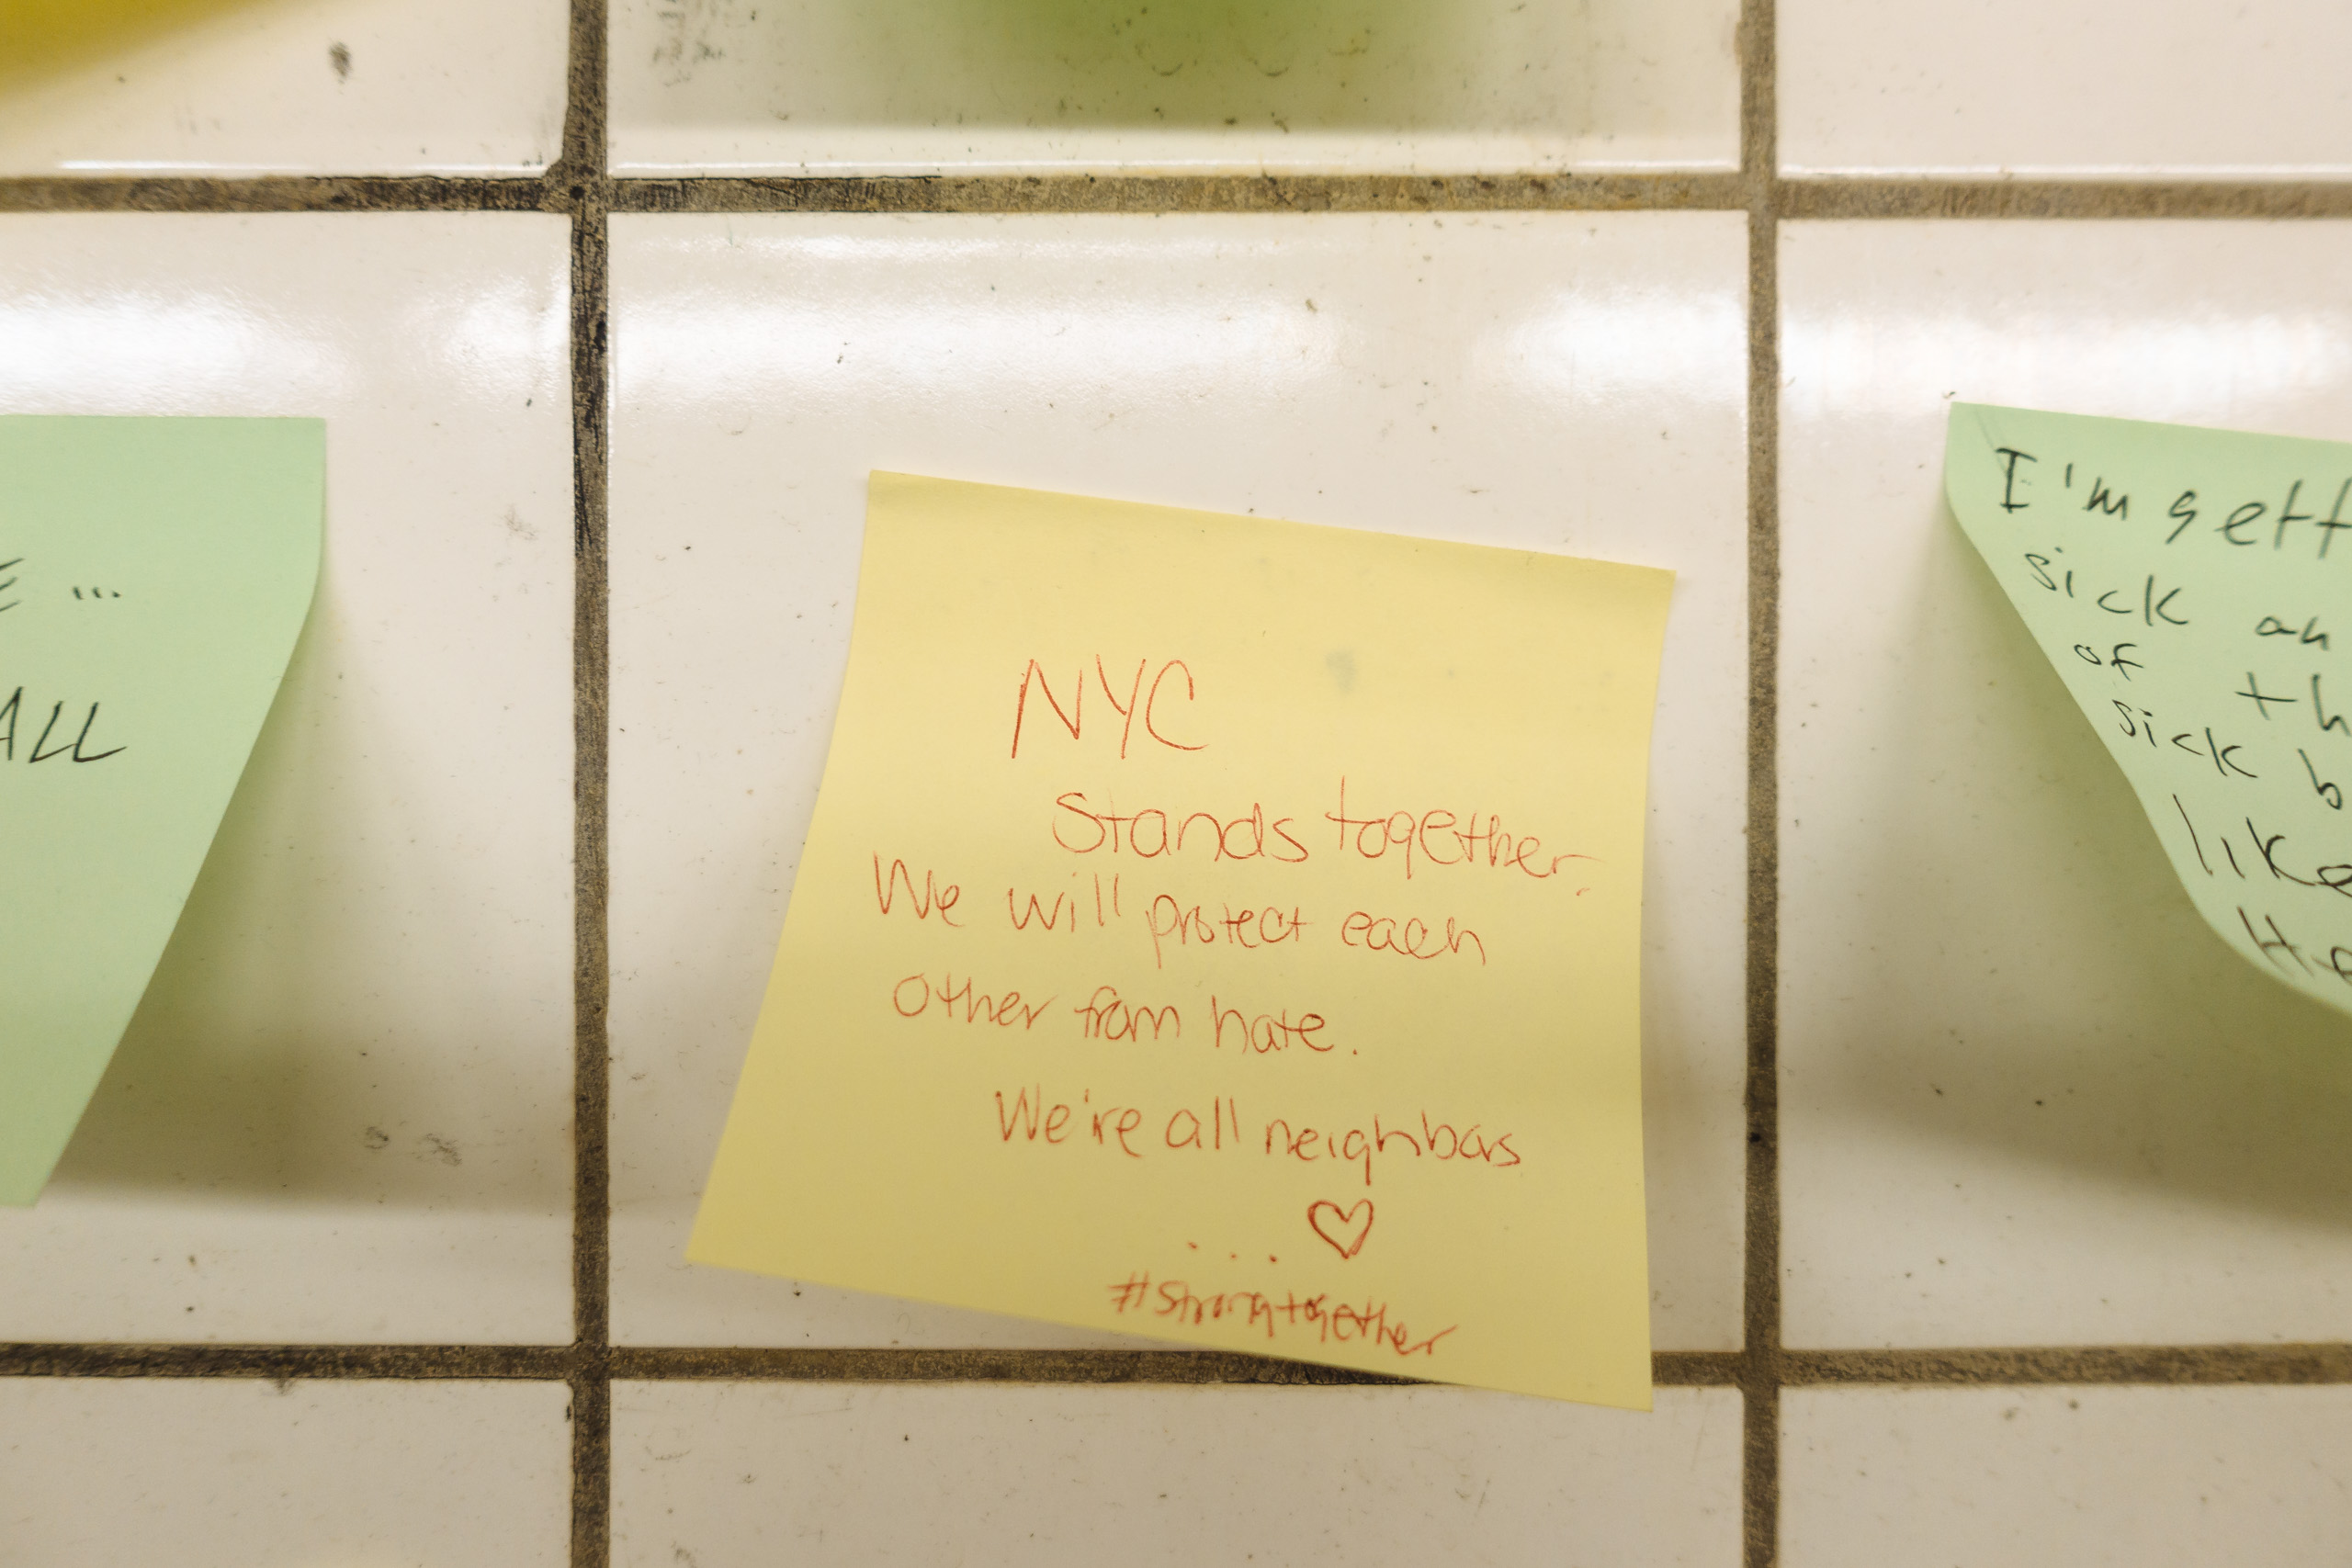 E ...
ALL
NYC
Stands together.
We will protect each
other from hate.
We're all neighbors
... ♡
#strongtogether
I'm gett
sick an
of th
sick b
like
He